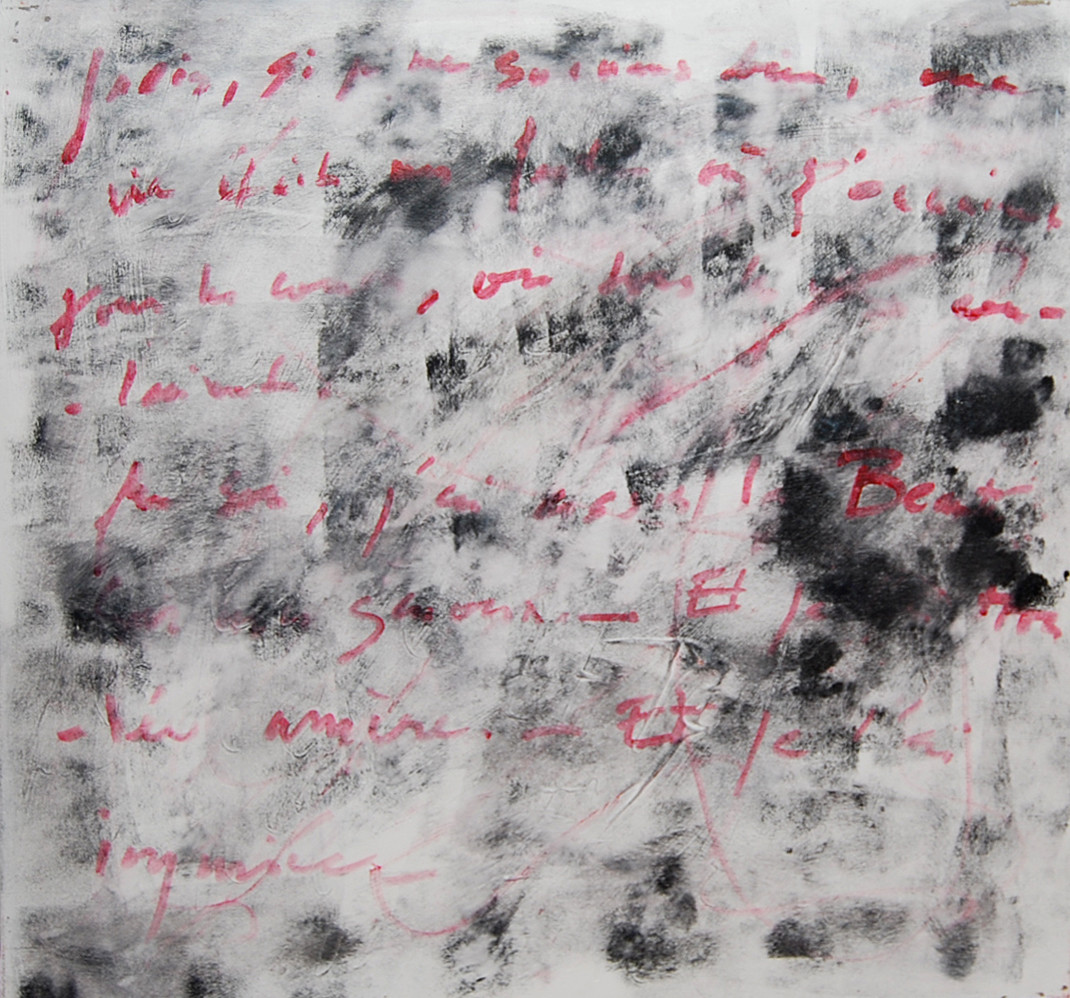 Jadis, si je me souviens bien, ma
vie était un festin où s'ouvraient
tous les coeurs, où tous les vins cou-
-laient.
Un soir, j'ai assis la Beauté
sur mes genoux. — Et je l'ai trou
-vée amère. — Et je l'ai
injuriée